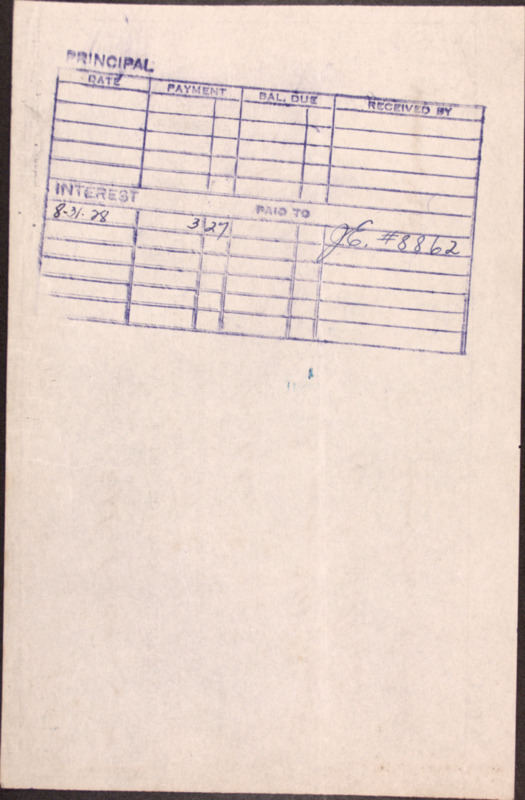 PRINCIPAL
DATE PAYMENT BAL. DUE RECEIVED BY
INTEREST PAID TO
8-31-28 3 27 J.E. #8862